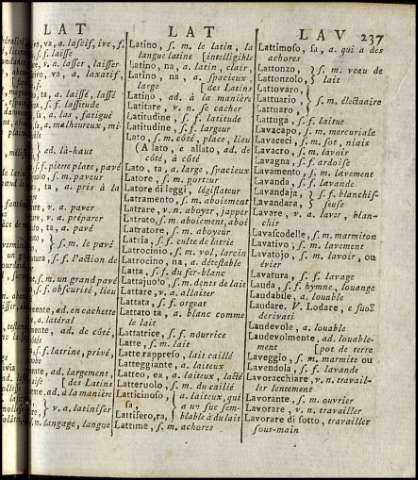 LAT LAT LAV 237
va, a. lascif, ive, s.
f. laisse
v. a. lasser, laisser
va, a. laxatif,
ta, a. laissé, lassé
f. lassitude
a. las, fatigué
a. malheureux, mi-
ad. là-haut
f. pierre plate, pavé
m. paveur
ta, a. pris à la
v. a. paver
v. a. préparer
ta, a. pavé
s. m. le pavé
s. f. l'action de
m. un grand pavé
f. obscurité, lieu
ad. en cachette
a. latéral
ad. de côté,
f. latrine, privé,
ad. largement,
[des Latins
ad. à la maniere
v. a. latiniser
n. langage, langue
Latino, s. m. le latin, la
langue latine [intelligible
Latino, na, a. latin, clair,
Latino, na, a. spacieux,
large [des Latins
Latino, ad. à la maniere
Latitare, v. n. se cacher
Latitudine, s. f. latitude
Latitudine, s. f. largeur
Lato, s. m. côté, place, lieu
(A lato, e allato, ad. de
côté, à côté
Lato, ta, a. large, spacieux
Latore, s. m. porteur
Latore di leggi, législateur
Latramento, s. m. aboiement
Latrare, v. n. aboyer, japper
Latrato, s. m. aboiement, aboi
Latratore, s. m. aboyeur
Latria, s. f. culte de latrie
Latrocinio, s. m. vol, larcin
Latrocino, na, a. détestable
Latta, s. f. du fer-blanc
Lattajuolo, s. m. dents de lait
Lattare, v. a. allaiter
Lattata, s. f. orgeat
Lattato ta, a. blanc comme
le lait
Lattatrice, s. f. nourrice
Latte, s. m. lait
Latte rappreso, lait caillé
Latteggiante, a. laiteux
Latteo, ea, a. laiteux, lacté
Latteruolo, s. m. du caillé
Latticinoso, a. laiteux, qui
sa, a un suc sem-
Lattifero, ra, blable à du lait
Lattime, s. m. achores
Lattimoso, sa, a. qui a des
achores
Lattonzo, s. m. veau de
Lattonzolo, lait
Lattovaro,
Lattuario, s. m. électuaire
Lattuaro,
Lattuga, s. f. laitue
Lavacapo, s. m. mercuriale
Lavaceci, s. m. sot, niais
Lavacro, s. m. lavoir
Lavagna, s. f. ardoise
Lavamento, s. m. lavement
Lavanda, s. f. lavande
Lavandaja, s. f. blanchis-
Lavandara, seuse
Lavare, v. a. laver, blan-
chir
Lavascodelle, s. m. marmiton
Lavativo, s. m. lavement
Lavatojo, s. m. lavoir, ou
évier
Lavatura, s. f. lavage
Lauda, s. f. hymne, louange
Laudabile, a. louable
Laudare, V. Lodare, e suoi
derivati
Laudevole, a. louable
Laudevolmente, ad. louable-
ment [pot de terre
Laveggio, s. m. marmite ou
Lavendola, s. f. lavande
Lavoracchiare, v. n. travail-
ler lentement
Lavorante, s. m. ouvrier
Lavorare, v. n. travailler
Lavorare di sotto, travailler
sous-main